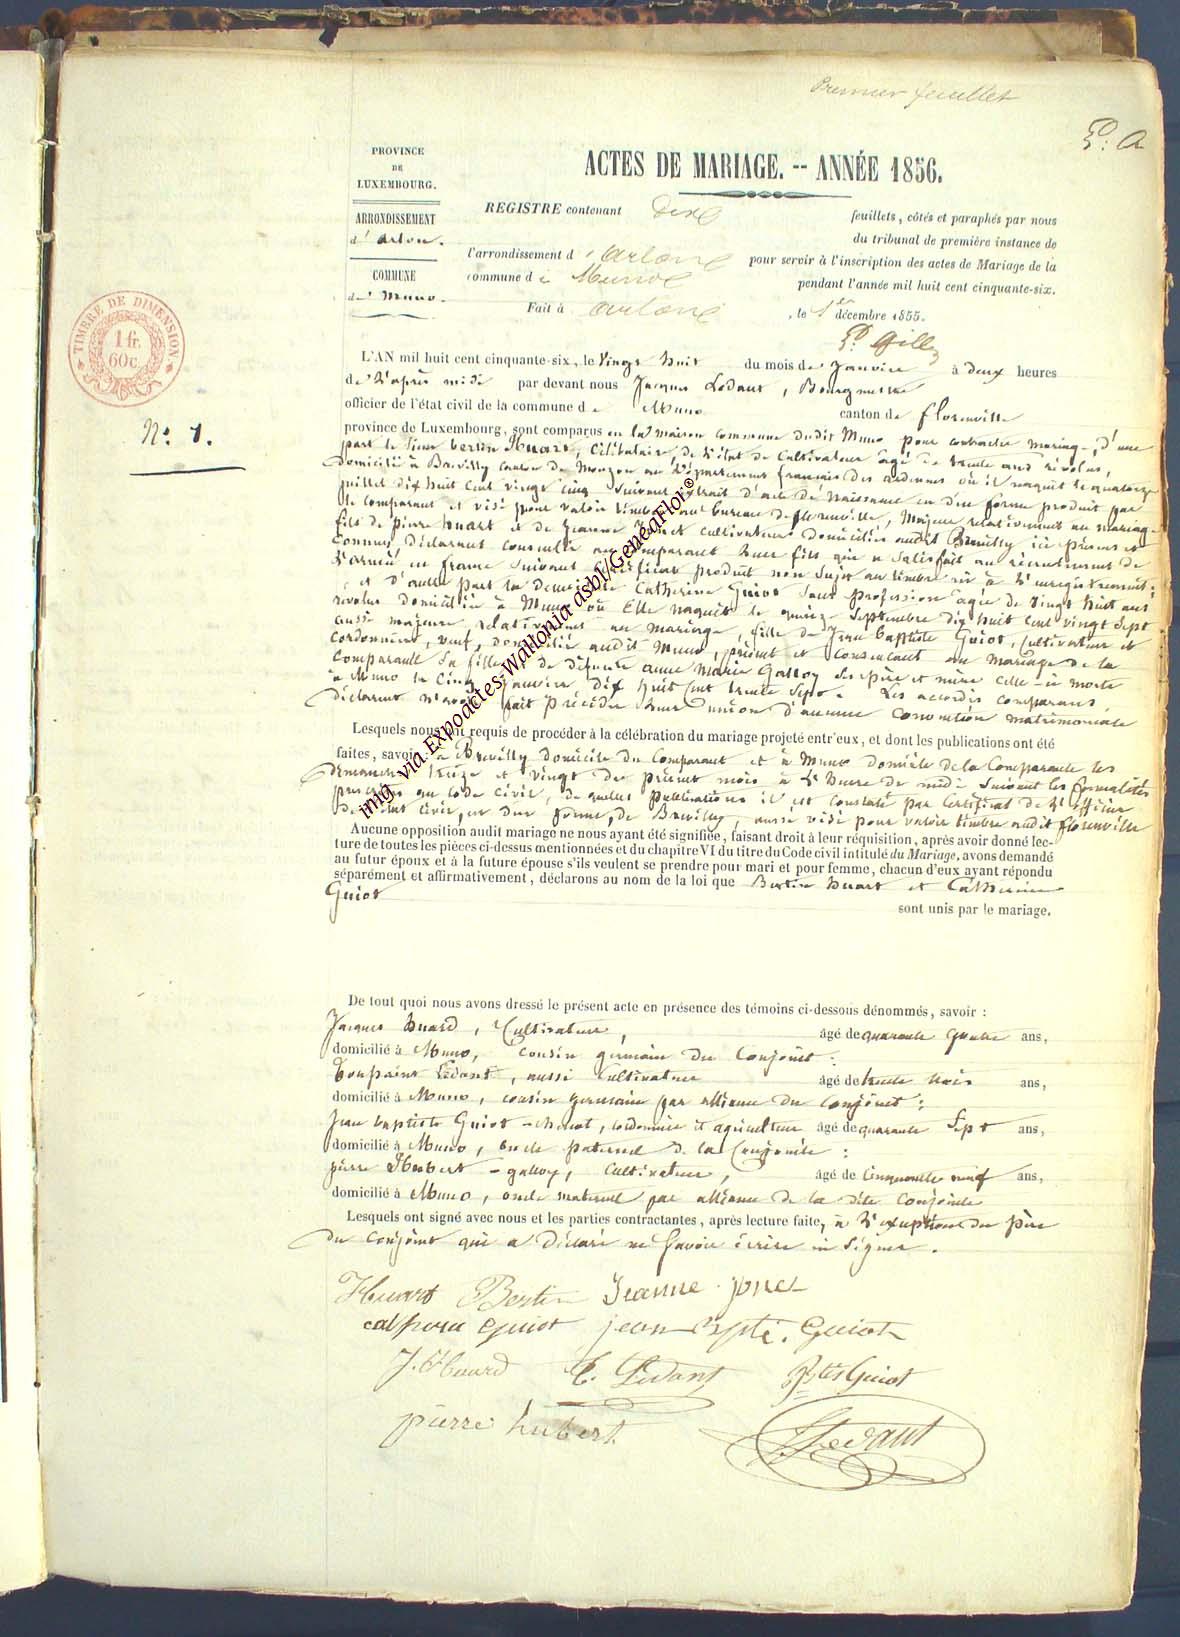 Premier feuillet
PROVINCE
DE
LUXEMBOURG.
ARRONDISSEMENT
d'Arlon.
COMMUNE
de Muno.
ACTES DE MARIAGE. -- ANNÉE 1856.
REGISTRE contenant feuillets, côtés et paraphés par nous
du tribunal de première instance de
l'arrondissement d'arlon pour servir à l'inscription des actes de Mariage de la
commune de Muno pendant l'année mil huit cent cinquante-six.
Fait à arlon, le 1er décembre 1855.
TIMBRE DE DIMENSION
1 fr.
60c.
N° 1.
L'AN mil huit cent cinquante-six, le Vingt huit du mois de Janvier à deux heures
de l'après midi par devant nous Jacques Ledant, Bourgmestre
officier de l'état civil de la commune de Muno canton de florenville
province de Luxembourg, sont comparus en la maison commune dudit Muno pour contracter mariage, d'une
part le Sieur bertin Huart, Célibataire de l'état de Cultivateur âgé de trente ans révolus,
domicilié à Brevilly canton de Mouzon au Département français des ardennes où il naquit le quatorze
juillet dix huit cent vingt cinq suivant extrait d'acte de Naissance en due forme produit par
le comparant et visé pour valoir timbre au bureau de florenville, Majeur relativement au mariage
fils de pierre huart et de jeanne cultivateurs domiciliés audit Brevilly ici présents et
Connus, déclarant consulté au comparant leur fils qui a satisfait au recrutement de
l'armée en france suivant certificat produit non sujet au timbre ni à l'enregistrement;
et d'autre part la demoiselle Catherine Guiot sans profession âgée de vingt huit ans
révolus domiciliée à Muno où Elle naquit le quinze Septembre dix huit cent vingt sept
aussi majeure relativement au mariage, fille de Jean baptiste Guiot, Cultivateur et
Cordonnier, veuf, domicilié audit Muno, présent et consentant au mariage de la
Comparante Sa fille et de défunte anne Marie Galloy Ses père et mère celle-ci morte
à Muno le Cinq Janvier dix huit Cent trente Sept. Les accordés comparans
déclarent n'avoir fait précéder leur union d'aucune convention matrimoniale
Lesquels nous ont requis de procéder à la célébration du mariage projeté entr'eux, et dont les publications ont été
faites, savoir: à Brevilly domicile du Comparant et à Muno domicile de la Comparante les
dimanches treize et vingt du présent mois à l'heure de midi Suivant les formalités
prescrites au Code Civil, de quelles publications il est constaté par Certificat de l'officier
de l'état civil, en due forme, de Brevilly, aussi visé pour valoir timbre audit florenville
Aucune opposition audit mariage ne nous ayant été signifiée, faisant droit à leur réquisition, après avoir donné lec-
ture de toutes les pièces ci-dessus mentionnées et du chapitre VI du titre du Code civil intitulé du Mariage, avons demandé
au futur époux et à la future épouse s'ils veulent se prendre pour mari et pour femme, chacun d'eux ayant répondu
séparément et affirmativement, déclarons au nom de la loi que Bertin huart et Catherine
Guiot
sont unis par le mariage.
De tout quoi nous avons dressé le présent acte en présence des témoins ci-dessous dénommés, savoir :
Jacques huard, Cultivateur, âgé de quarante quatre ans,
domicilié à Muno, cousin germain du Conjoint :
Toussaint Ledant, aussi Cultivateur âgé de trente trois ans,
domicilié à Muno, cousin germain par alliance du Conjoint ;
Jean baptiste Guiot, cordonnier et agriculteur âgé de quarante Sept ans,
domicilié à Muno, oncle paternel de la Conjointe :
pierre Hubert - galloy, Cultivateur, âgé de Cinquante neuf ans,
domicilié à Muno, oncle maternel par alliance de la dite Conjointe
Lesquels ont signé avec nous et les parties contractantes, après lecture faite, à l'exception du père
du conjoint qui a déclaré ne savoir écrire ni signer.
Huart Bertin Jeanne
Guiot jean Bpte. Guiot
J. Huard T. Ledant Bte Guiot
pierre hubert
J Ledant
img via Expoactes-Wallonia asbl/GeneaFlor®